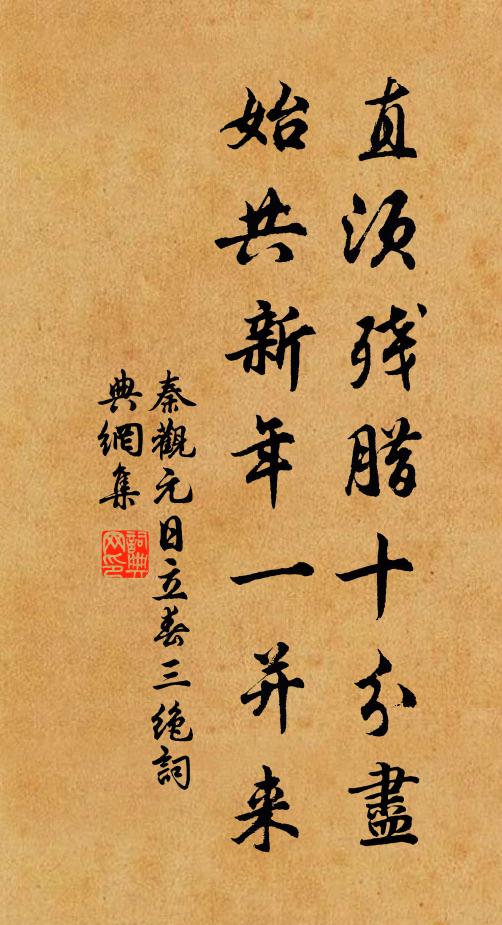 直须残腊十分盡
始共新年一并来
秦觀元日立春三绝詞
典網集
詞典
网印